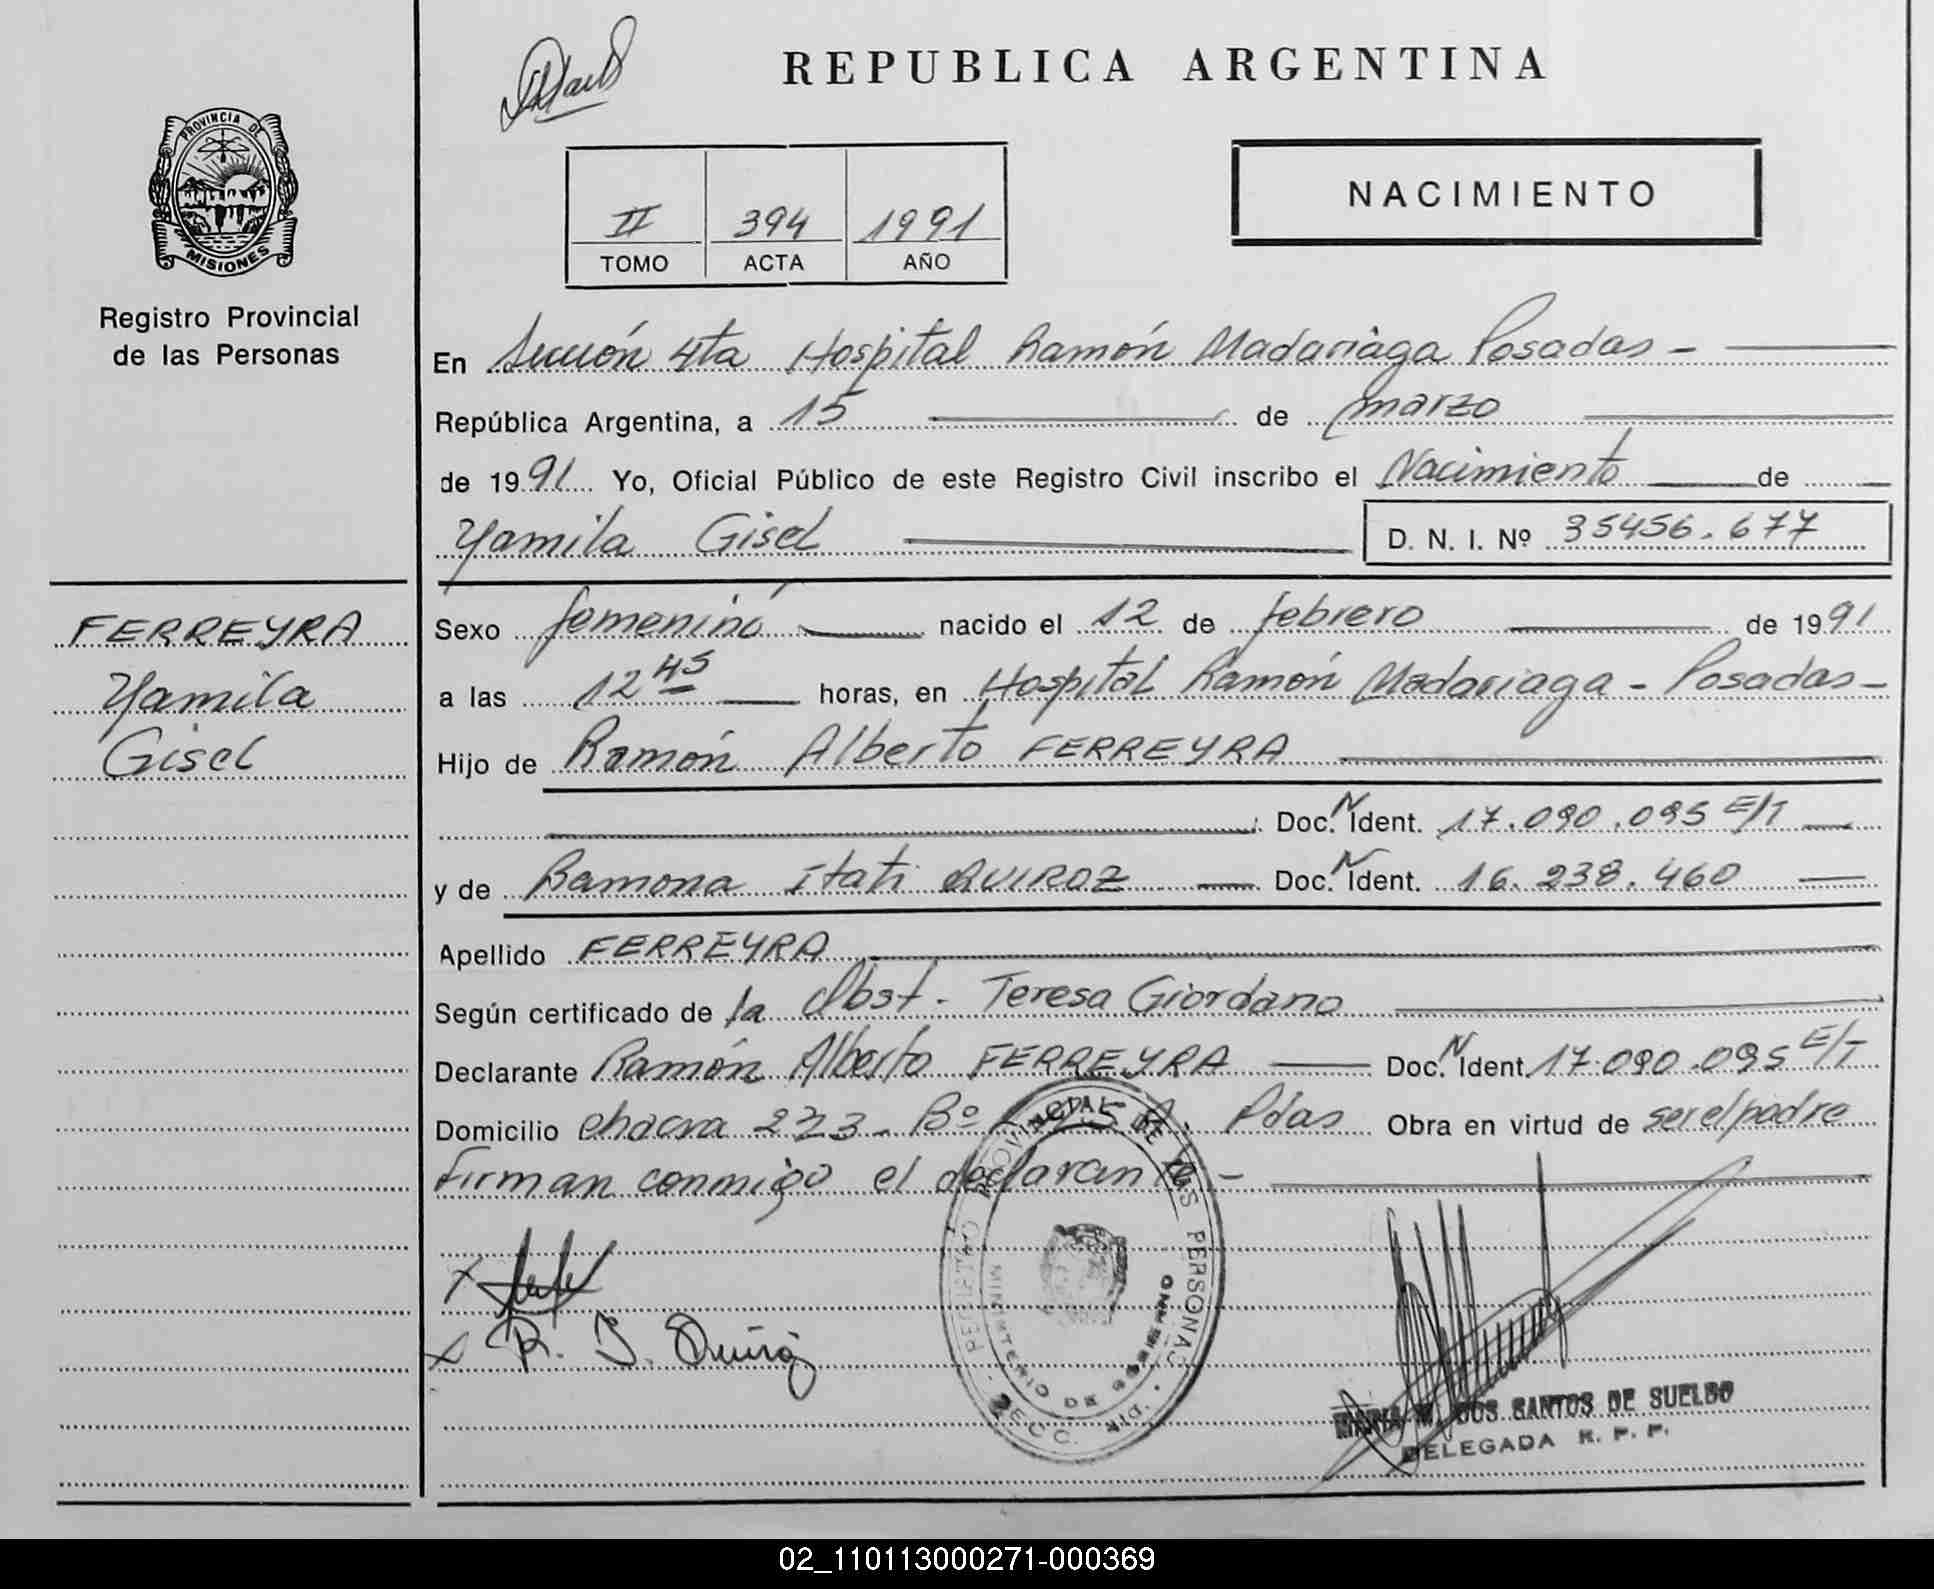 REPUBLICA ARGENTINA
PROVINCIA DE
MISIONES
Registro Provincial
de las Personas
II 394 1991
TOMO ACTA AÑO
NACIMIENTO
En Sección 4ta Hospital Ramón Madariaga Posadas -
República Argentina, a 15 de marzo
de 1991 Yo, Oficial Público de este Registro Civil inscribo el Nacimiento de
Yamila Gisel D. N. I. Nº 35456.677
FERREYRA
Yamila
Gisel
Sexo femenino nacido el 12 de febrero de 1991
a las 12 45 horas, en Hospital Ramón Madariaga - Posadas -
Hijo de Ramón Alberto FERREYRA
Doc. N Ident. 17.090.095 E/T
y de Ramona Itati QUIROZ Doc. N Ident. 16.238.460
Apellido FERREYRA
Según certificado de la Obst. Teresa Giordano
Declarante Ramón Alberto FERREYRA Doc. N Ident. 17.090.095 E/T
Domicilio chacra 223 - Bº Pdas Obra en virtud de ser el padre
Firman conmigo el declarante -
R. I. Quiroz
REGISTRO PROVINCIAL DE LAS PERSONAS
MINISTERIO DE GOBIERNO
SECC.
MARIA M. DOS SANTOS DE SUELDO
DELEGADA R. P. P.
02_110113000271-000369